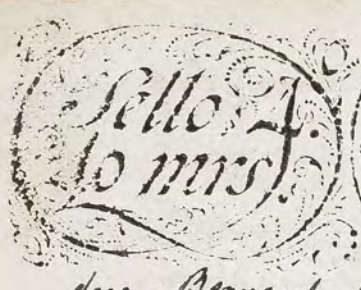 Sello 4.
to mrs.